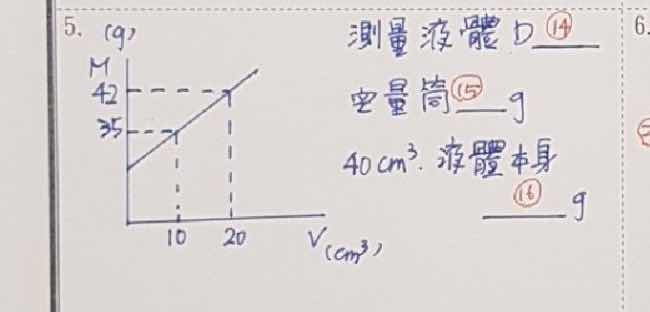 5. (g)
M
42
35
10 20 V(cm³)
測量液體D ⑭
空量筒 ⑮ g
40cm³. 液體本身
⑯ g
6.